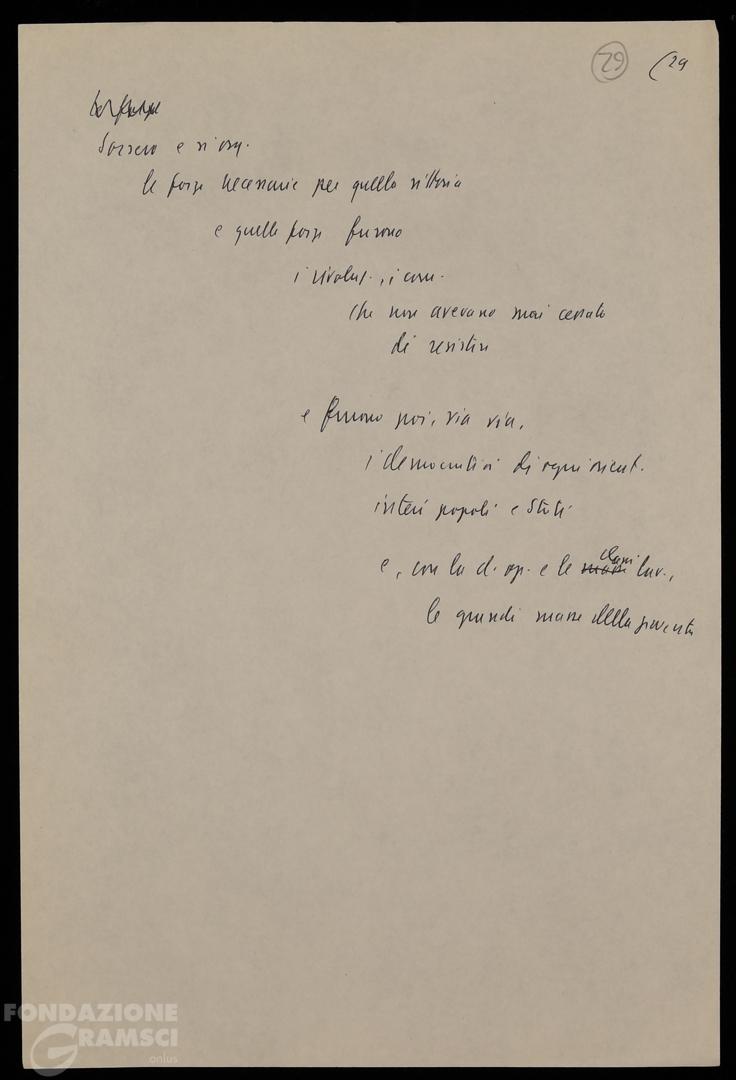 29 (29
Sorsero e si org.
le forze necessarie per quella vittoria
e quelle forze furono
i rivoluz., i com.
che non avevano mai cessato
di resistere
e furono poi, via via,
i democratici di ogni orient.
interi popoli e Stati
e, con la cl. op. e le classi lav.,
le grandi masse della gioventù
FONDAZIONE
GRAMSCI
onlus